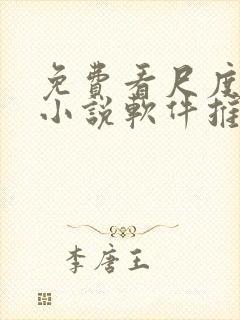 免費看尺度
小說軟件推
李唐王